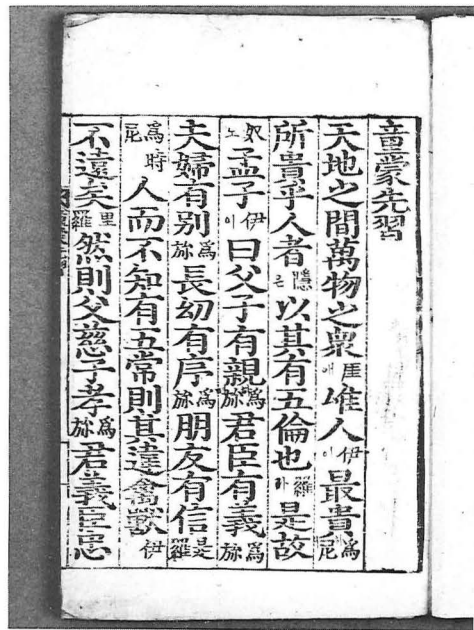 童蒙先習
天地之間萬物之衆厓애唯人伊이最貴爲尼
所貴乎人者隱은以其有五倫也羅라是故
奴노孟子伊이曰父子有親爲旀君臣有義爲旀
夫婦有別爲旀長幼有序爲旀朋友有信是羅
爲時尼人而不知有五常則其違禽獸伊
不遠矣里羅然則父慈子孝爲旀君義臣忠